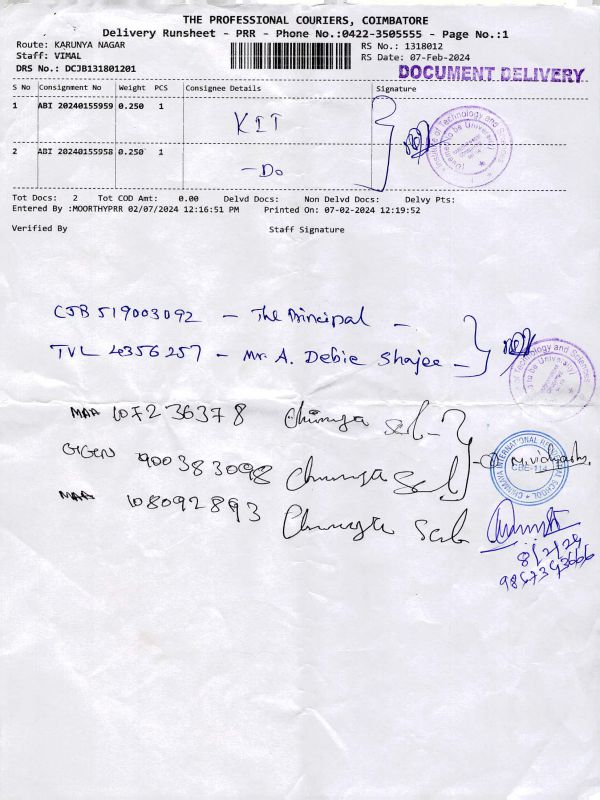 THE PROFESSIONAL COURIERS, COIMBATORE
Delivery Runsheet - PRR - Phone No.:0422-3505555 - Page No.:1
Route: KARUNYA NAGAR
Staff: VIMAL
DRS No.: DCJB131801201
RS No.: 1318012
RS Date: 07-Feb-2024
DOCUMENT DELIVERY
S No Consignment No Weight PCS Consignee Details Signature
1 ABI 20240155959 0.250 1 KIT
2 ABI 20240155958 0.250 1 -Do
Institute of Technology and Sciences
(Deemed to be University)
Tot Docs: 2 Tot COD Amt: 0.00 Delvd Docs: Non Delvd Docs: Delvy Pts:
Entered By :MOORTHYPRR 02/07/2024 12:16:51 PM Printed On: 07-02-2024 12:19:52
Verified By Staff Signature
CJB 519003092 - The Principal -
TVL 4356257 - Mr. A. Debie Shajee -
of Technology and Sciences
to be University)
MAA 107236378 Chinmya
900383098 Chinmya
MAA 108092893
CHINMAYA INTERNATIONAL RESIDENTIAL SCHOOL
CBE-114
8/2/24